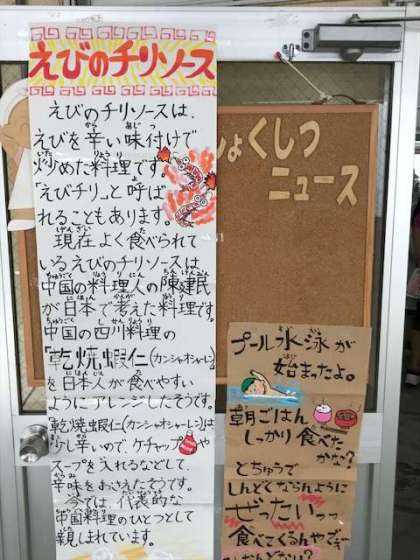 えびのチリソース
えびのチリソースは、
えびを辛い味付けで
炒めた料理です。
「えびチリ」と呼ば
れることもあります。
現在よく食べられて
いるえびのチリソースは
中国の料理人の陳建民
が日本で考えた料理です。
中国の四川料理の
「乾焼蝦仁(カンシャオシャレン)」
を日本人が食べやすい
ようにアレンジしたそうです。
乾焼蝦仁(カンシャオシャレン)は
少し辛いので、ケチャップや
スープを入れるなどして、
辛味をおさえたそうです。
今では、代表的な
中国料理のひとつとして
親しまれています。
しょくしつ
ニュース
プール水泳が
始まったよ。
朝ごはん
しっかり食べた
かな?
とちゅうで
しんどくならんように
ぜったいっっ
食べてくるんやでー